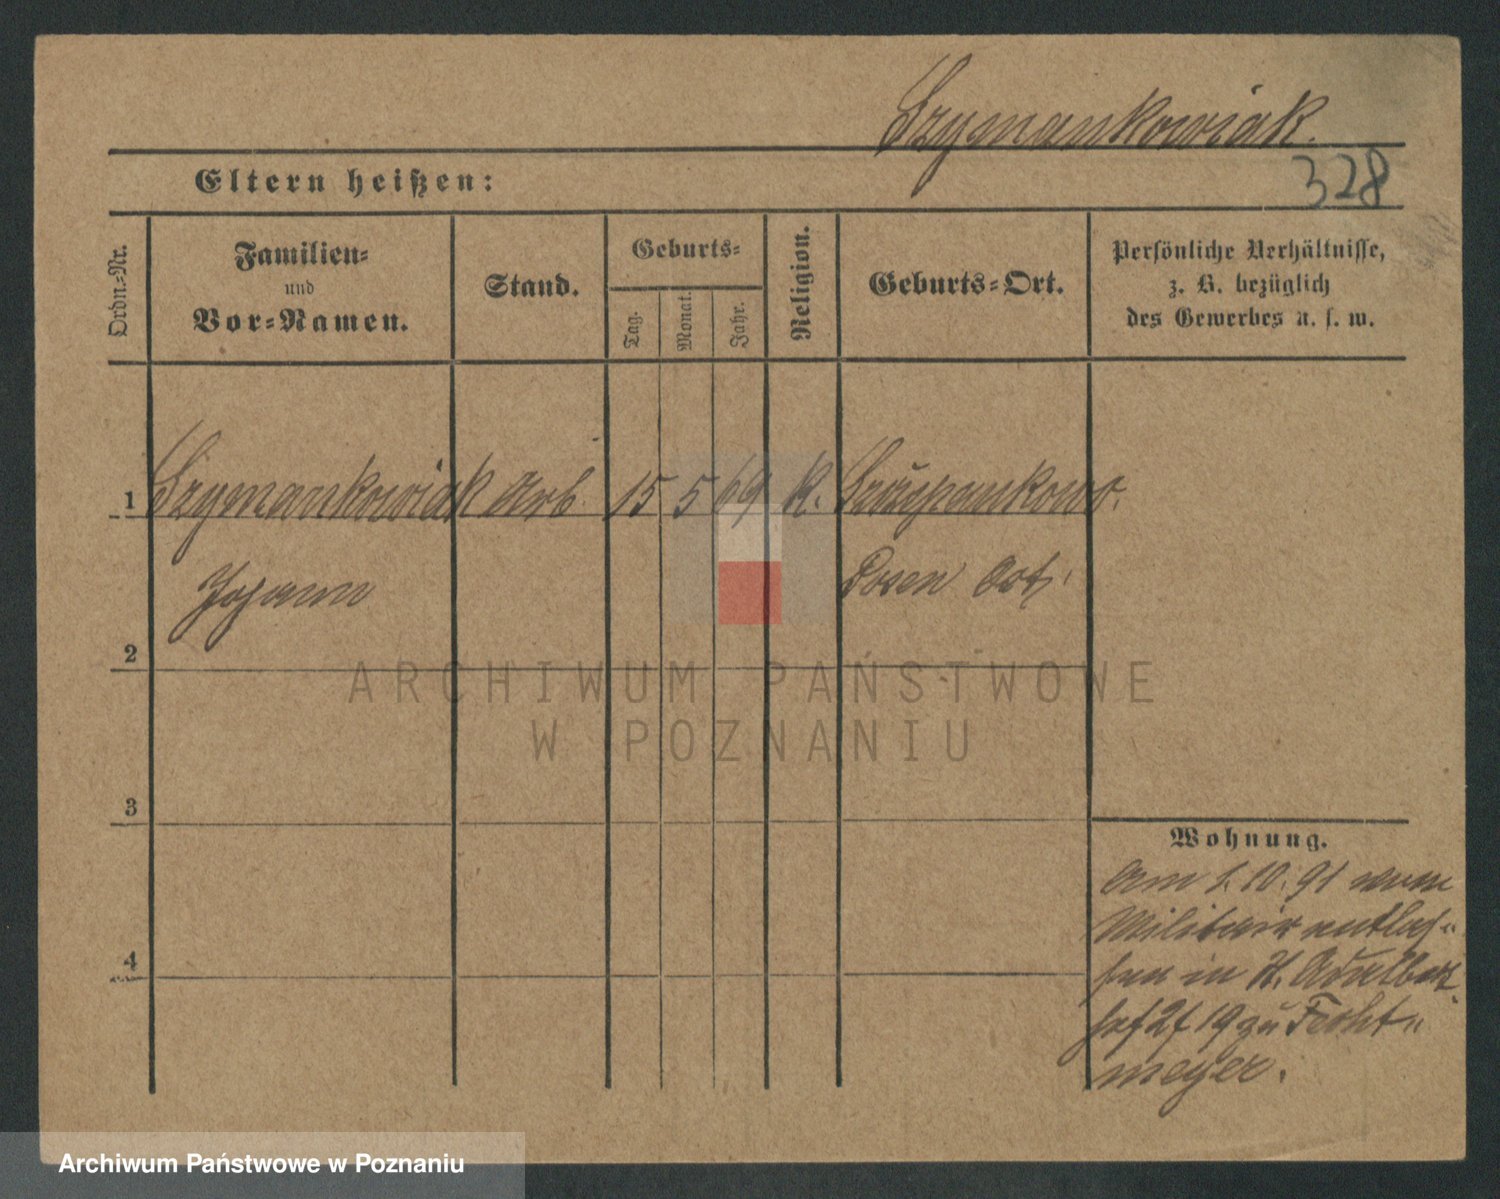 Szymankowiak.
Eltern heißen:
328
Ordn.-Nr.
Familien-
und
Vor-Namen.
Stand.
Geburts-
Tag.
Monat.
Jahr.
Religion.
Geburts-Ort.
Persönliche Verhältnisse,
z. B. bezüglich
des Gewerbes u. s. w.
1 Szymankowiak Arb. 15 5 69 K. Szczepankowo.
Johann Posen Ost.
2
ARCHIWUM PAŃSTWOWE
W POZNANIU
3
Wohnung.
Am 1.10.91 vom
Militair entlas-
sen in St. Adalbert
19 zu Fecht-
meyer.
4
Archiwum Państwowe w Poznaniu